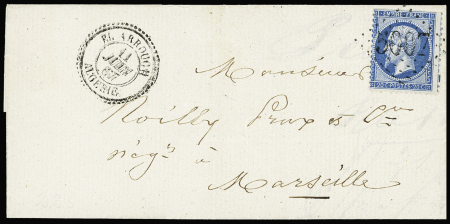 EL ARROUCH
11
JUIN
ALGERIE
EMPIRE FRANC
20 C POSTES 20 C
Monsieur
Noilly Prat & Cie
négts à
Marseille